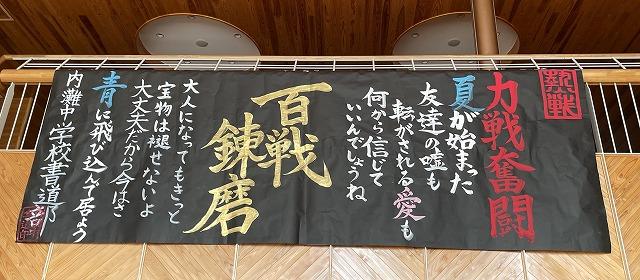 熱戦
力戦奮闘
夏が始まった
友達の嘘も
転がされる愛も
何から信じて
いいんでしょうね
百戦
錬磨
大人になってもきっと
宝物は褪せないよ
大丈夫だから今はさ
青に飛び込んで居よう
内灘中学校書道部